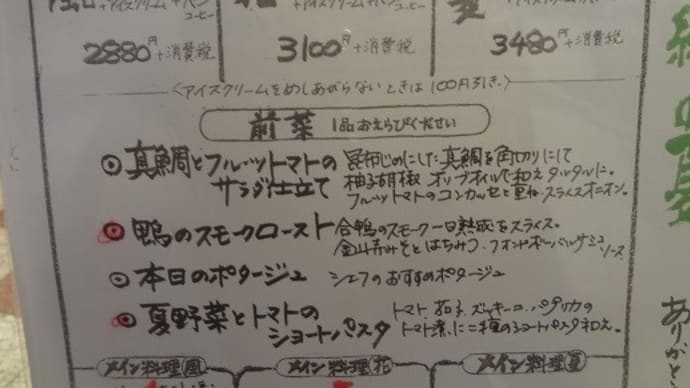 +アイスクリーム+パン
コーヒー
2880円+消費税
3100円+消費税
3480円+消費税
〈アイスクリームをめしあがらないときは100円引き.〉
前菜 1品おえらびください
◎真鯛とフルーツトマトの
サラダ仕立て
昆布じめにした真鯛を角切りにて
柚子胡椒 オリーブオイルで和えタルタルに。
フルーツトマトのコンカッセと重ね、スライスオニオン。
◎鴨のスモークロースト
合鴨のスモーク一日熟成をスライス。
金山寺みそとはちみつ、フォンドボーバルサミコ
ソース.
◎本日のポタージュ シェフのおすすめポタージュ
◎夏野菜とトマトの
ショートパスタ
トマト、茄子、ズッキーニ、パプリカの
トマト煮に二種のショートパスタ和え。
メイン料理(風)
メイン料理(花)
メイン料理(夏)
ありがと